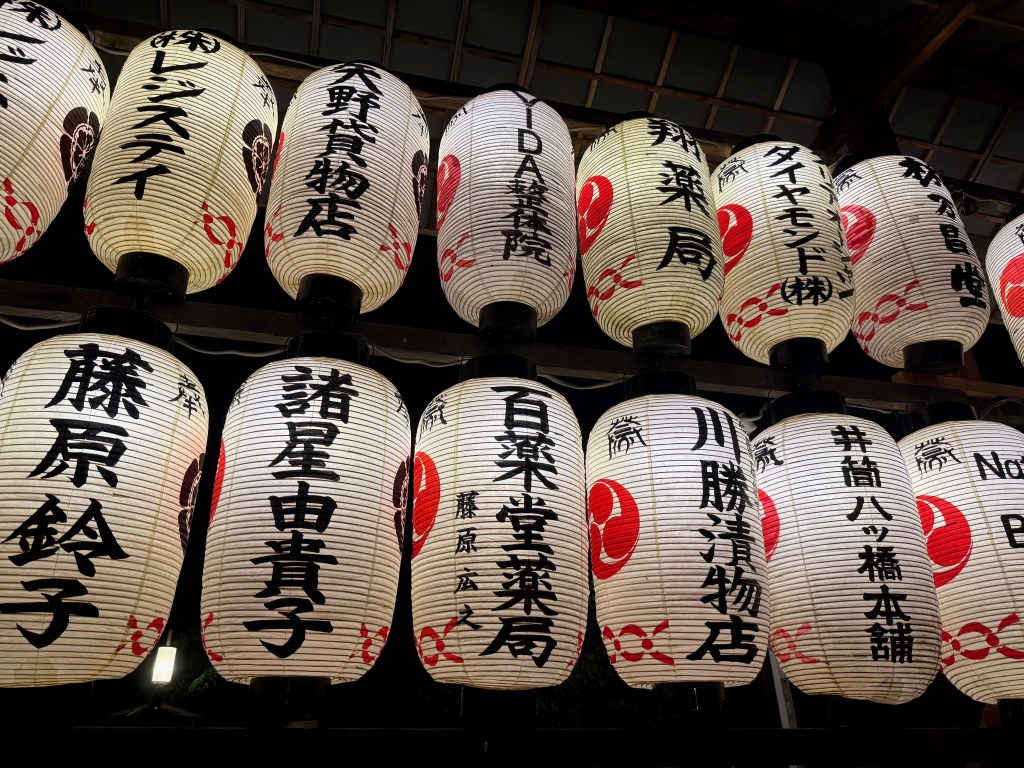 ㈱レジスティ
天野貸物店
YDA整体院
翔薬局
ダイヤモンド㈱
藤原鈴子
奉
諸星由貴子
百薬堂薬局
藤原広之
川勝漬物店
井筒八ッ橋本舗